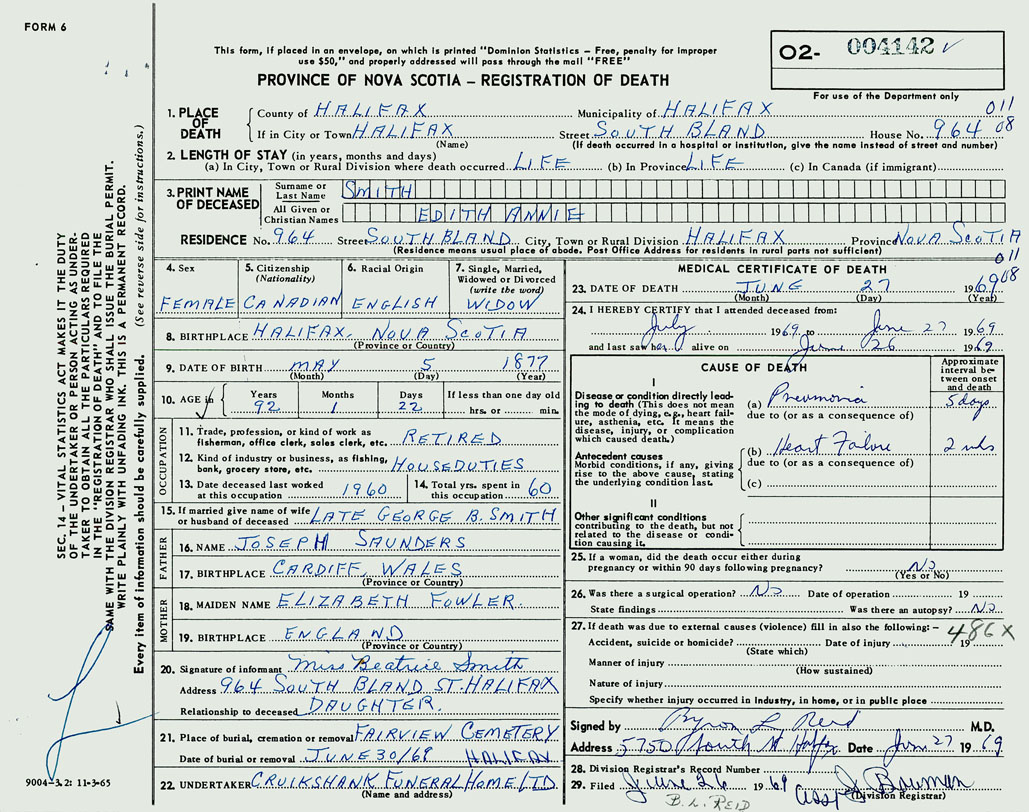 FORM 6
This form, if placed in an envelope, on which is printed "Dominion Statistics – Free, penalty for improper
use $50," and properly addressed will pass through the mail "FREE"
PROVINCE OF NOVA SCOTIA – REGISTRATION OF DEATH
O2- 004142 ✓
For use of the Department only
1. PLACE OF DEATH
County of HALIFAX Municipality of HALIFAX 011
If in City or Town HALIFAX Street SOUTH BLAND House No. 964 08
(Name) (If death occurred in a hospital or institution, give the name instead of street and number)
2. LENGTH OF STAY (in years, months and days)
(a) In City, Town or Rural Division where death occurred LIFE (b) In Province LIFE (c) In Canada (if immigrant)
3. PRINT NAME OF DECEASED
Surname or Last Name SMITH
All Given or Christian Names EDITH ANNIE
RESIDENCE No. 964 Street SOUTH BLAND City, Town or Rural Division HALIFAX Province NOVA SCOTIA
(Residence means usual place of abode. Post Office Address for residents in rural parts not sufficient)
011
08
4. Sex
FEMALE
5. Citizenship (Nationality)
CANADIAN
6. Racial Origin
ENGLISH
7. Single, Married, Widowed or Divorced (write the word)
WIDOW
8. BIRTHPLACE HALIFAX. NOVA SCOTIA
(Province or Country)
9. DATE OF BIRTH MAY 5 1877
(Month) (Day) (Year)
10. AGE in Years Months Days If less than one day old
92 1 22 hrs. or min.
OCCUPATION
11. Trade, profession, or kind of work as
fisherman, office clerk, sales clerk, etc. RETIRED
12. Kind of industry or business, as fishing,
bank, grocery store, etc. HOUSEDUTIES
13. Date deceased last worked
at this occupation 1960
14. Total yrs. spent in
this occupation 60
15. If married give name of wife
or husband of deceased LATE GEORGE B. SMITH
FATHER
16. NAME JOSEPH SAUNDERS
17. BIRTHPLACE CARDIFF, WALES
(Province or Country)
MOTHER
18. MAIDEN NAME ELIZABETH FOWLER.
19. BIRTHPLACE ENGLAND
(Province or Country)
20. Signature of informant Miss Beatrice Smith
Address 964 SOUTH BLAND ST. HALIFAX
Relationship to deceased DAUGHTER.
21. Place of burial, cremation or removal FAIRVIEW CEMETERY
Date of burial or removal JUNE 30/69 HALIFAX
22. UNDERTAKER CRUIKSHANK FUNERAL HOME LTD.
(Name and address)
MEDICAL CERTIFICATE OF DEATH
23. DATE OF DEATH JUNE 27 1969
(Month) (Day) (Year)
24. I HEREBY CERTIFY that I attended deceased from:
July 1969 to June 27 1969
and last saw her alive on June 26 1969
CAUSE OF DEATH
Approximate interval between onset and death
I
Disease or condition directly leading to death (This does not mean
the mode of dying, e.g., heart failure, asthenia, etc. It means the
disease, injury, or complication
which caused death.)
(a) Pneumonia 5 days
due to (or as a consequence of)
Antecedent causes
Morbid conditions, if any, giving
rise to the above cause, stating
the underlying condition last.
(b) Heart Failure 2 wks
due to (or as a consequence of)
(c)
II
Other significant conditions
contributing to the death, but not
related to the disease or condition causing it.
25. If a woman, did the death occur either during
pregnancy or within 90 days following pregnancy? No
(Yes or No)
26. Was there a surgical operation? No Date of operation 19
State findings Was there an autopsy? No
27. If death was due to external causes (violence) fill in also the following: – 486X
Accident, suicide or homicide? Date of injury 19
(State which)
Manner of injury
(How sustained)
Nature of injury
Specify whether injury occurred in industry, in home, or in public place
Signed by Byron L Reid M.D.
Address 5750 South St Date Jun 27 1969.
28. Division Registrar's Record Number
29. Filed June 26 1969 J Bowman
(Division Registrar)
B. L. REID
SEC. 14 – VITAL STATISTICS ACT MAKES IT THE DUTY
OF THE UNDERTAKER OR PERSON ACTING AS UNDERTAKER TO OBTAIN ALL THE PARTICULARS REQUIRED
IN THE "REGISTRATION OF DEATH" AND TO FILE THE
SAME WITH THE DIVISION REGISTRAR WHO SHALL ISSUE THE BURIAL PERMIT.
WRITE PLAINLY WITH UNFADING INK. THIS IS A PERMANENT RECORD.
Every item of information should be carefully supplied. (See reverse side for instructions.)
9004-3.2: 11-3-65